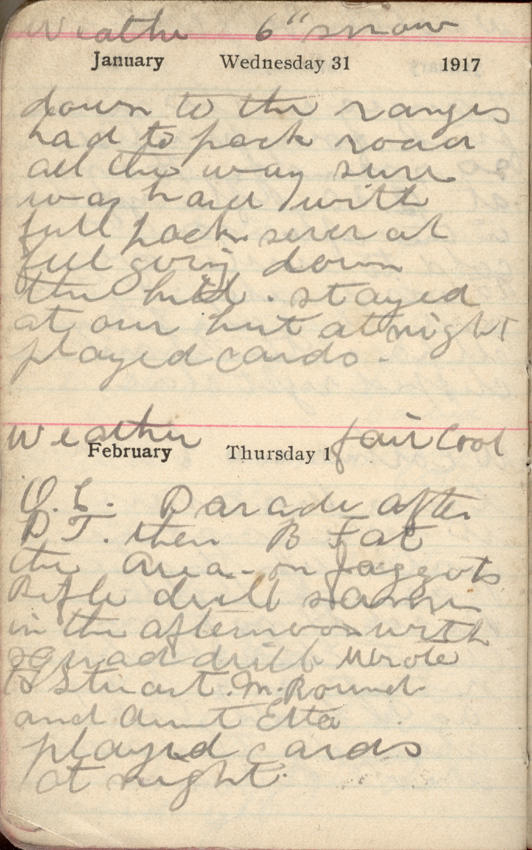 Weathe 6" snow
January Wednesday 31 1917
down to the ranges
had to pack road
all the way sure
was hard with
full pack sever at
feet going down
the hill. stayed
at our hut at night
played cards.
Weather fair Cool
February Thursday 1
O.C. Parade after
P.T. then B F at
the area - on faggots
Rifle drill same
in the afternoon with
squad drill Wrote
to Stuart. M. Round
and Aunt Etta
played cards
at night.